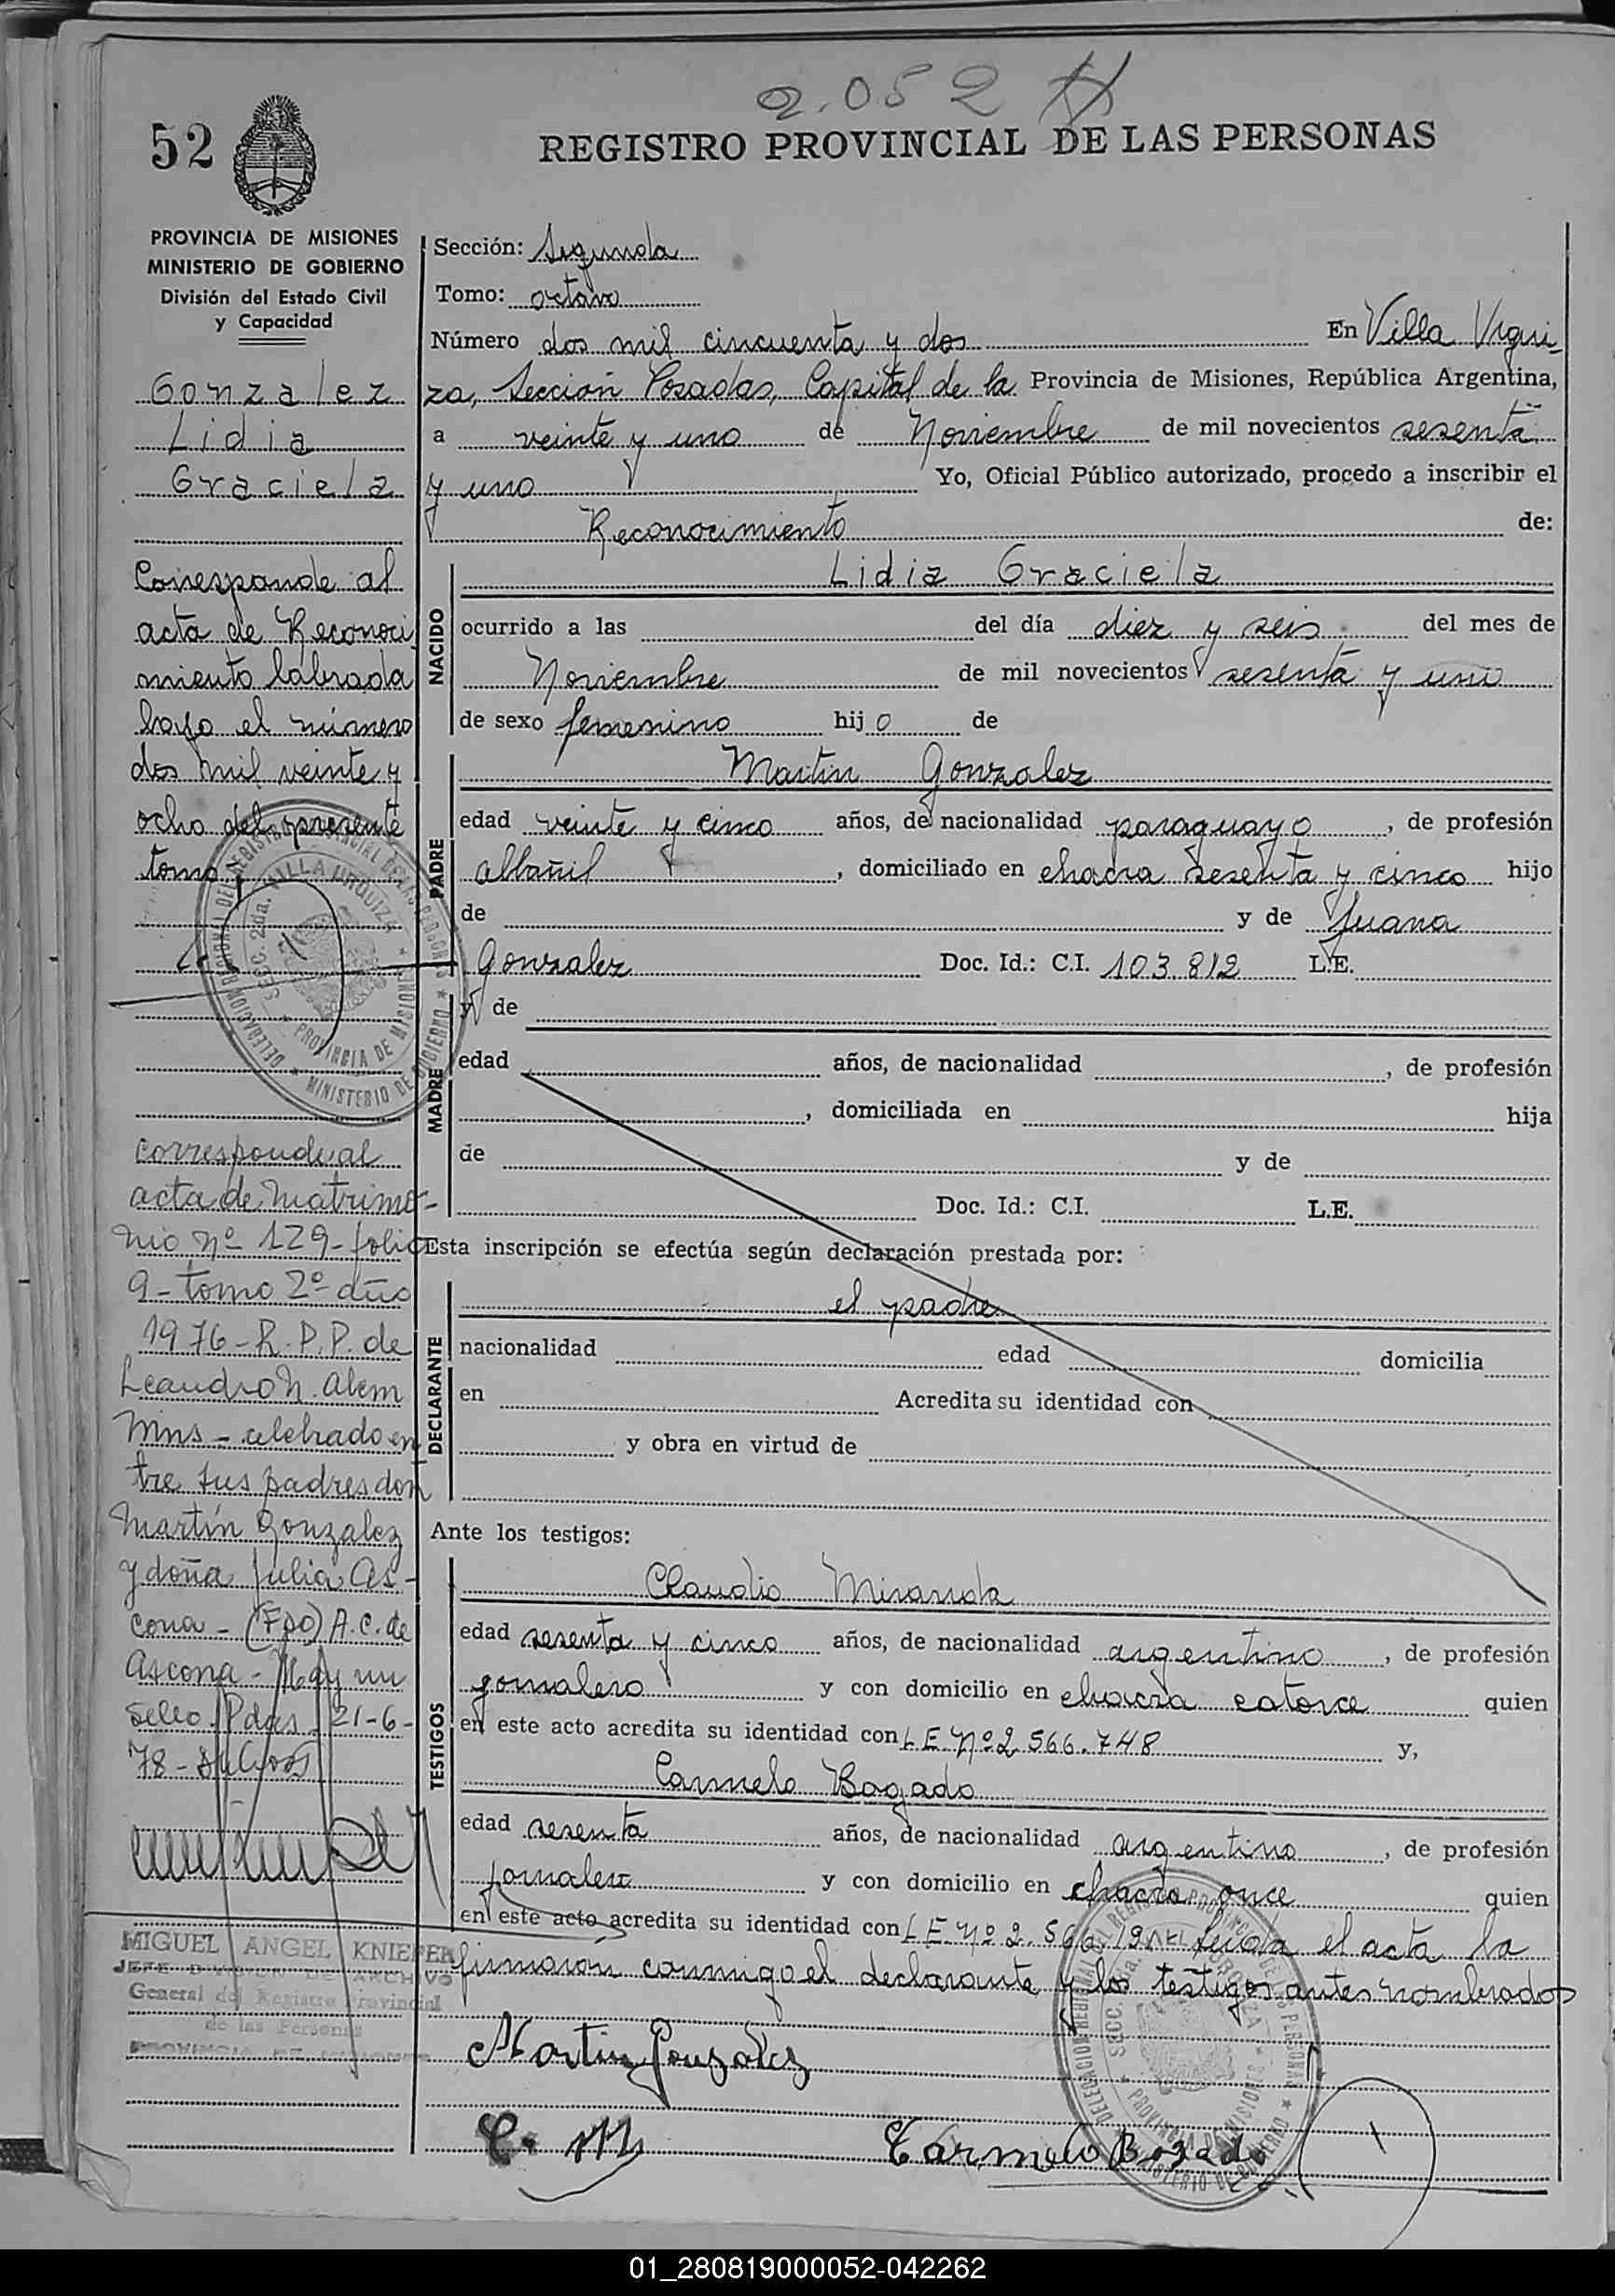 2.052
52
REGISTRO PROVINCIAL DE LAS PERSONAS
PROVINCIA DE MISIONES
MINISTERIO DE GOBIERNO
División del Estado Civil
y Capacidad
Gonzalez
Lidia
Graciela
Corresponde al
acta de Reconoci
miento labrada
bajo el número
dos mil veinte y
ocho del presente
tomo
corresponde al
acta de Matrimo-
nio nº 129- folio
9- tomo 2º año
1976- R.P.P. de
Leandro N. Alem
Mns - celebrado en
tre sus padres don
Martín Gonzalez
y doña Julia As-
cona - (Fdo) A.C. de
Ascona - Hay un
Sello. Pdas. 21-6-
78-
MIGUEL ANGEL KNIEPER
JEFE DIVISION DE ARCHIVO
General del Registro Provincial
de las Personas
PROVINCIA DE MISIONES
Sección: Segunda
Tomo: octavo
Número dos mil cincuenta y dos En Villa Urqui-
za, Sección Posadas, Capital de la Provincia de Misiones, República Argentina,
a veinte y uno de Noviembre de mil novecientos sesenta
y uno Yo, Oficial Público autorizado, procedo a inscribir el
Reconocimiento de:
NACIDO
Lidia Graciela
ocurrido a las del día diez y seis del mes de
Noviembre de mil novecientos sesenta y uno
de sexo femenino hijo de
PADRE
Martin Gonzalez
edad veinte y cinco años, de nacionalidad paraguayo, de profesión
albañil, domiciliado en chacra sesenta y cinco hijo
de y de Juana
Gonzalez Doc. Id.: C.I. 103.812 L.E.
MADRE
y de
edad años, de nacionalidad , de profesión
, domiciliada en hija
de y de
Doc. Id.: C.I. L.E.
Esta inscripción se efectúa según declaración prestada por:
DECLARANTE
el padre
nacionalidad edad domicilia
en Acredita su identidad con
y obra en virtud de
Ante los testigos:
TESTIGOS
Claudio Miranda
edad sesenta y cinco años, de nacionalidad argentino, de profesión
jornalero y con domicilio en chacra catorce quien
en este acto acredita su identidad con LE Nº 2.566.748 y,
Carmelo Bogado
edad sesenta años, de nacionalidad argentino, de profesión
jornalero y con domicilio en chacra once quien
en este acto acredita su identidad con LE Nº 2.566. leida el acta la
firmaron conmigo el declarante y los testigos antes nombrados
Martin Gonzalez
C. M
Carmelo Bogado
DELEGACION REGIONAL DEL REGISTRO PROVINCIAL DE LAS PERSONAS
MINISTERIO DE GOBIERNO
SECC. 2da. VILLA URQUIZA
PROVINCIA DE MISIONES
01_280819000052-042262